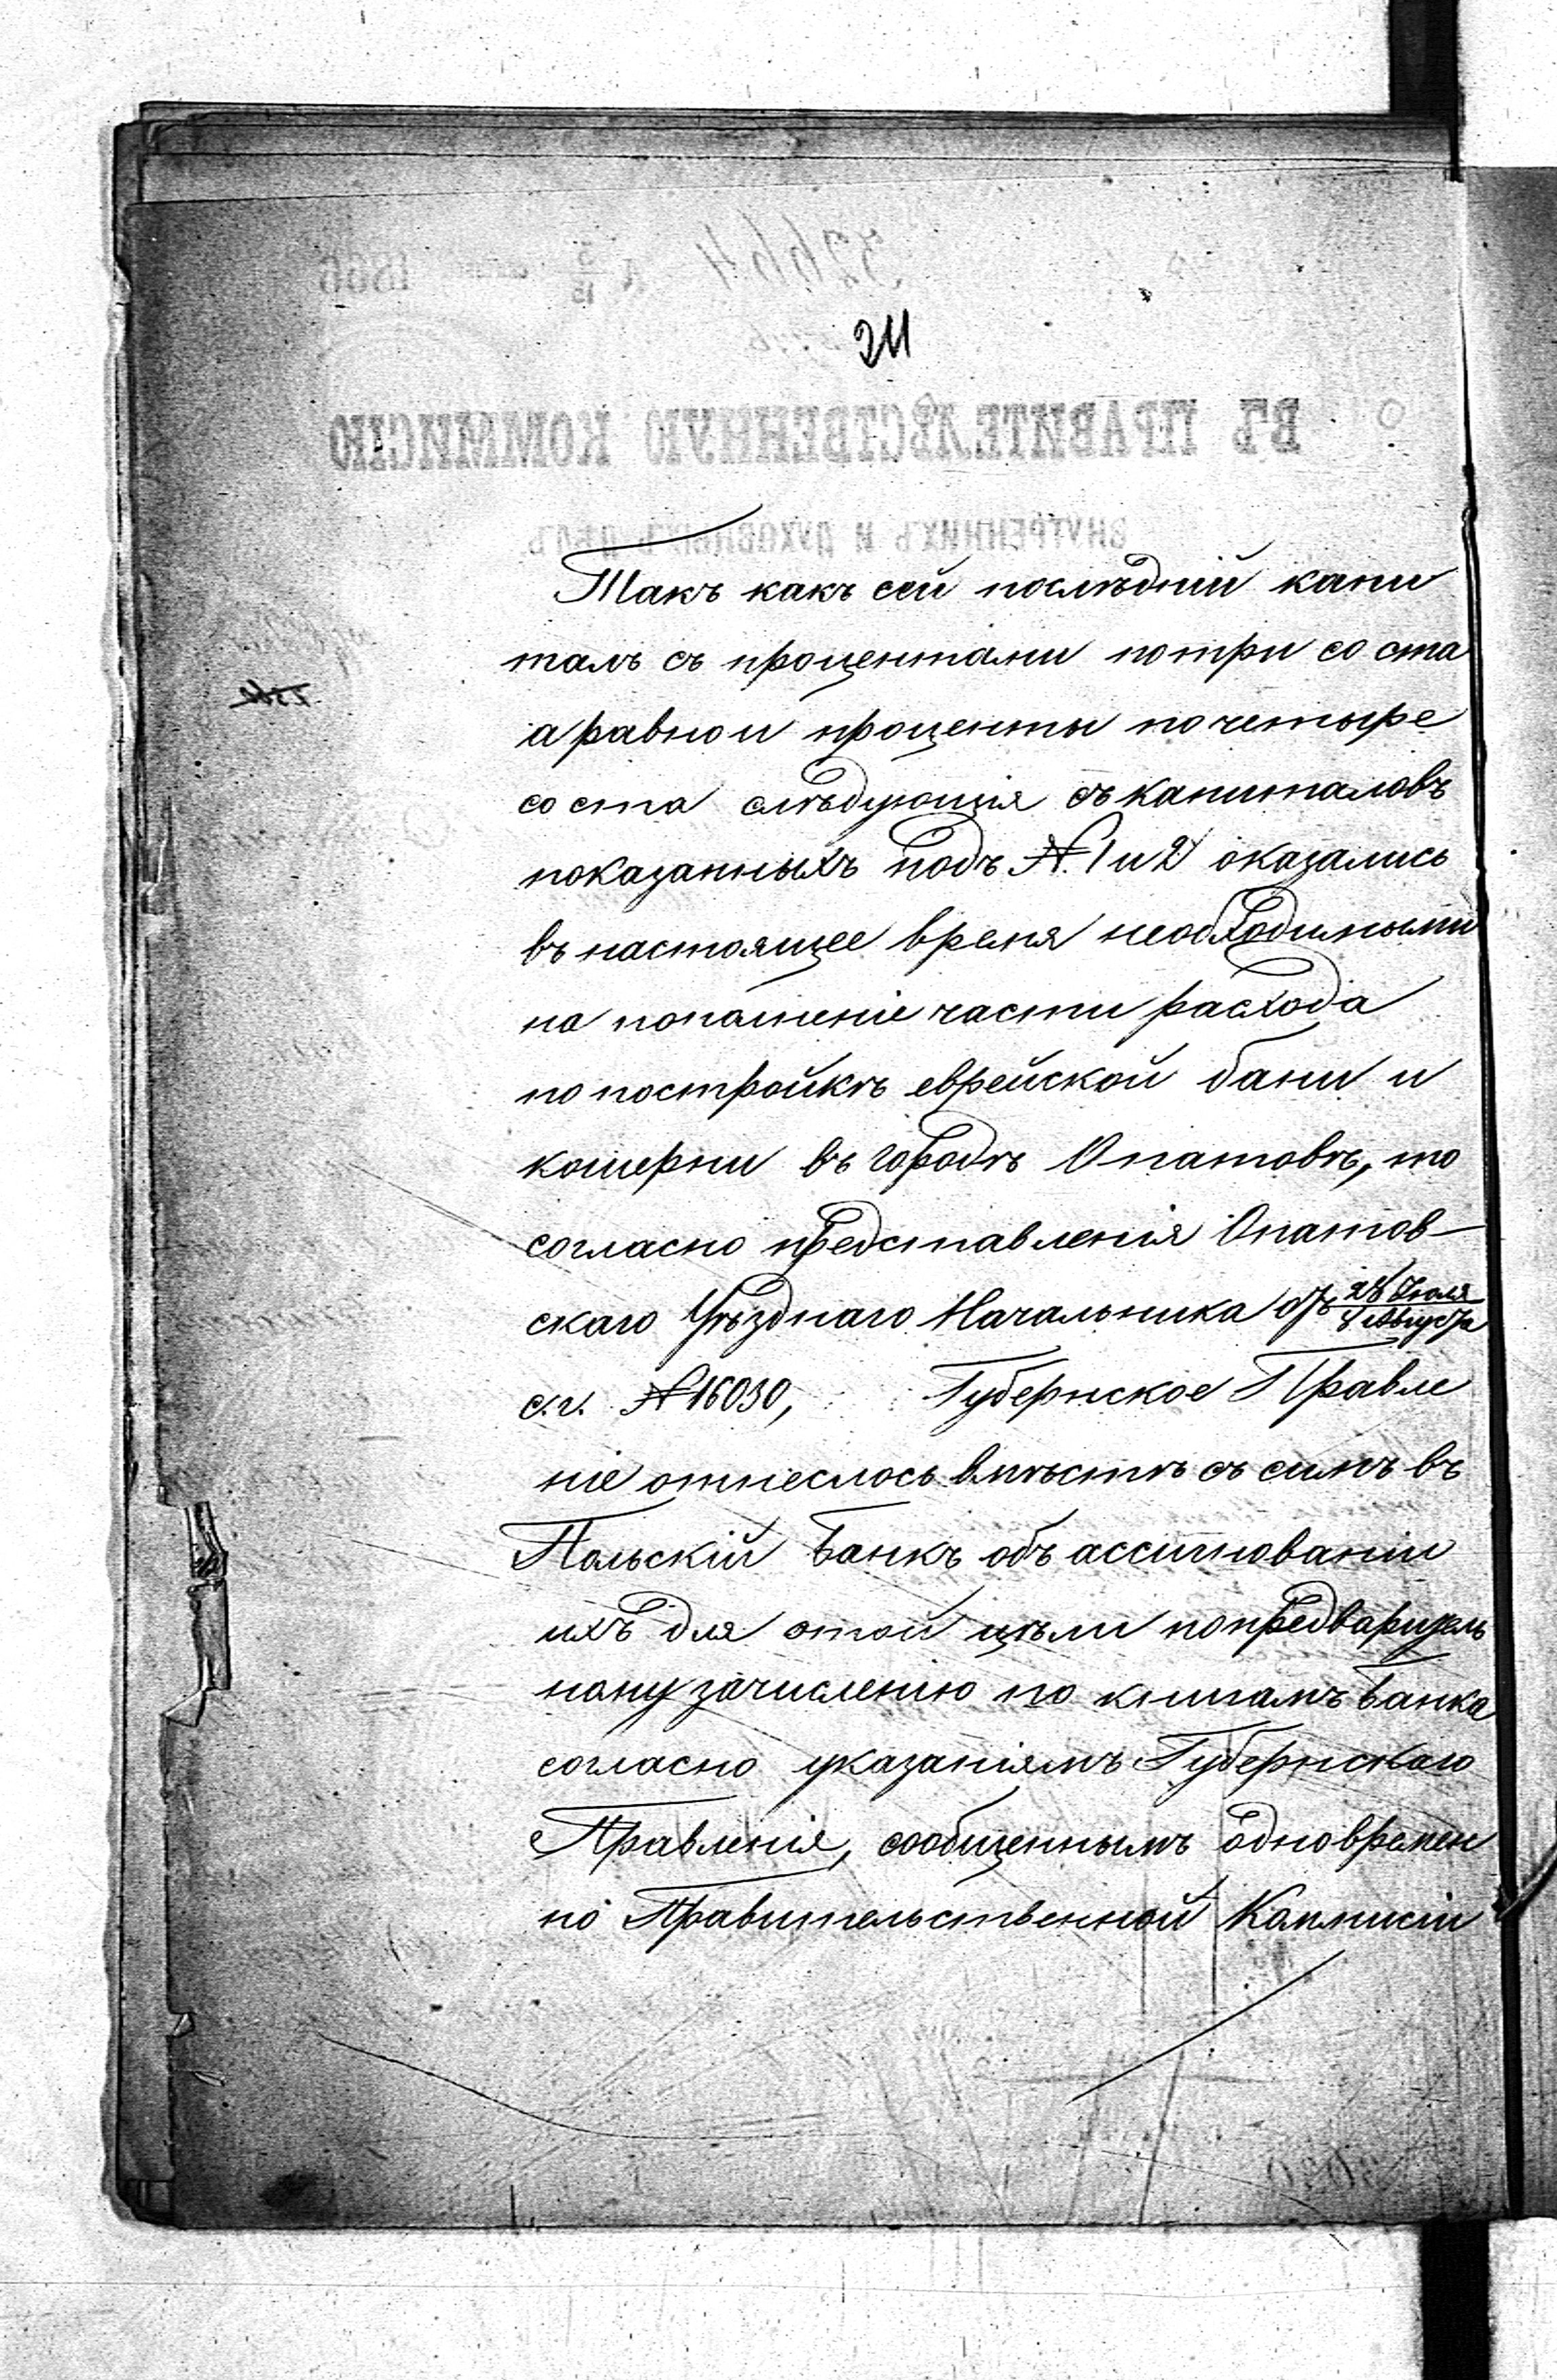 211
Такъ какъ сей послѣдній капи
талъ съ процентами по три со ста
а равно и проценты по четыре
со ста слѣдующія съ капиталовъ
показанныхъ подъ №. 1 и 2 оказались
въ настоящее время необходимыми
на погашеніе части расхода
по постройкѣ еврейской бани и
кошерни въ городѣ Опатовѣ, то
согласно представленія Опатов-
скаго Уѣзднаго Начальника отъ 28 Іюля / 8 Августа
с.г. № 16030, Губернское Правле
ніе отнеслось вмѣстѣ съ симъ въ
Польскій Банкъ объ ассигнованіи
ихъ для этой цѣли по предваритель
ному зачисленію по книгамъ Банка
согласно указаніямъ Губернскаго
Правленія, сообщеннымъ одновремен
но Правительственной Коммисіи